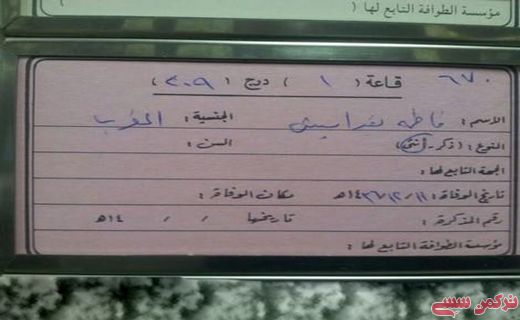 مؤسسة الطوافة التابع لها :
٦٧٠ قاعة ( ١ ) درج ( ٢٠٩ )
الاسم : فاطمة الجنسية : المغرب
النوع : ( ذكر - أنثى ) السن :
الجهة التابع لها :
تاريخ الوفاة : ١١ / ١٢ / ١٤٣٦هـ مكان الوفاة :
رقم المذكرة : تاريخها / / ١٤هـ
مؤسسة الطوافة التابع لها :